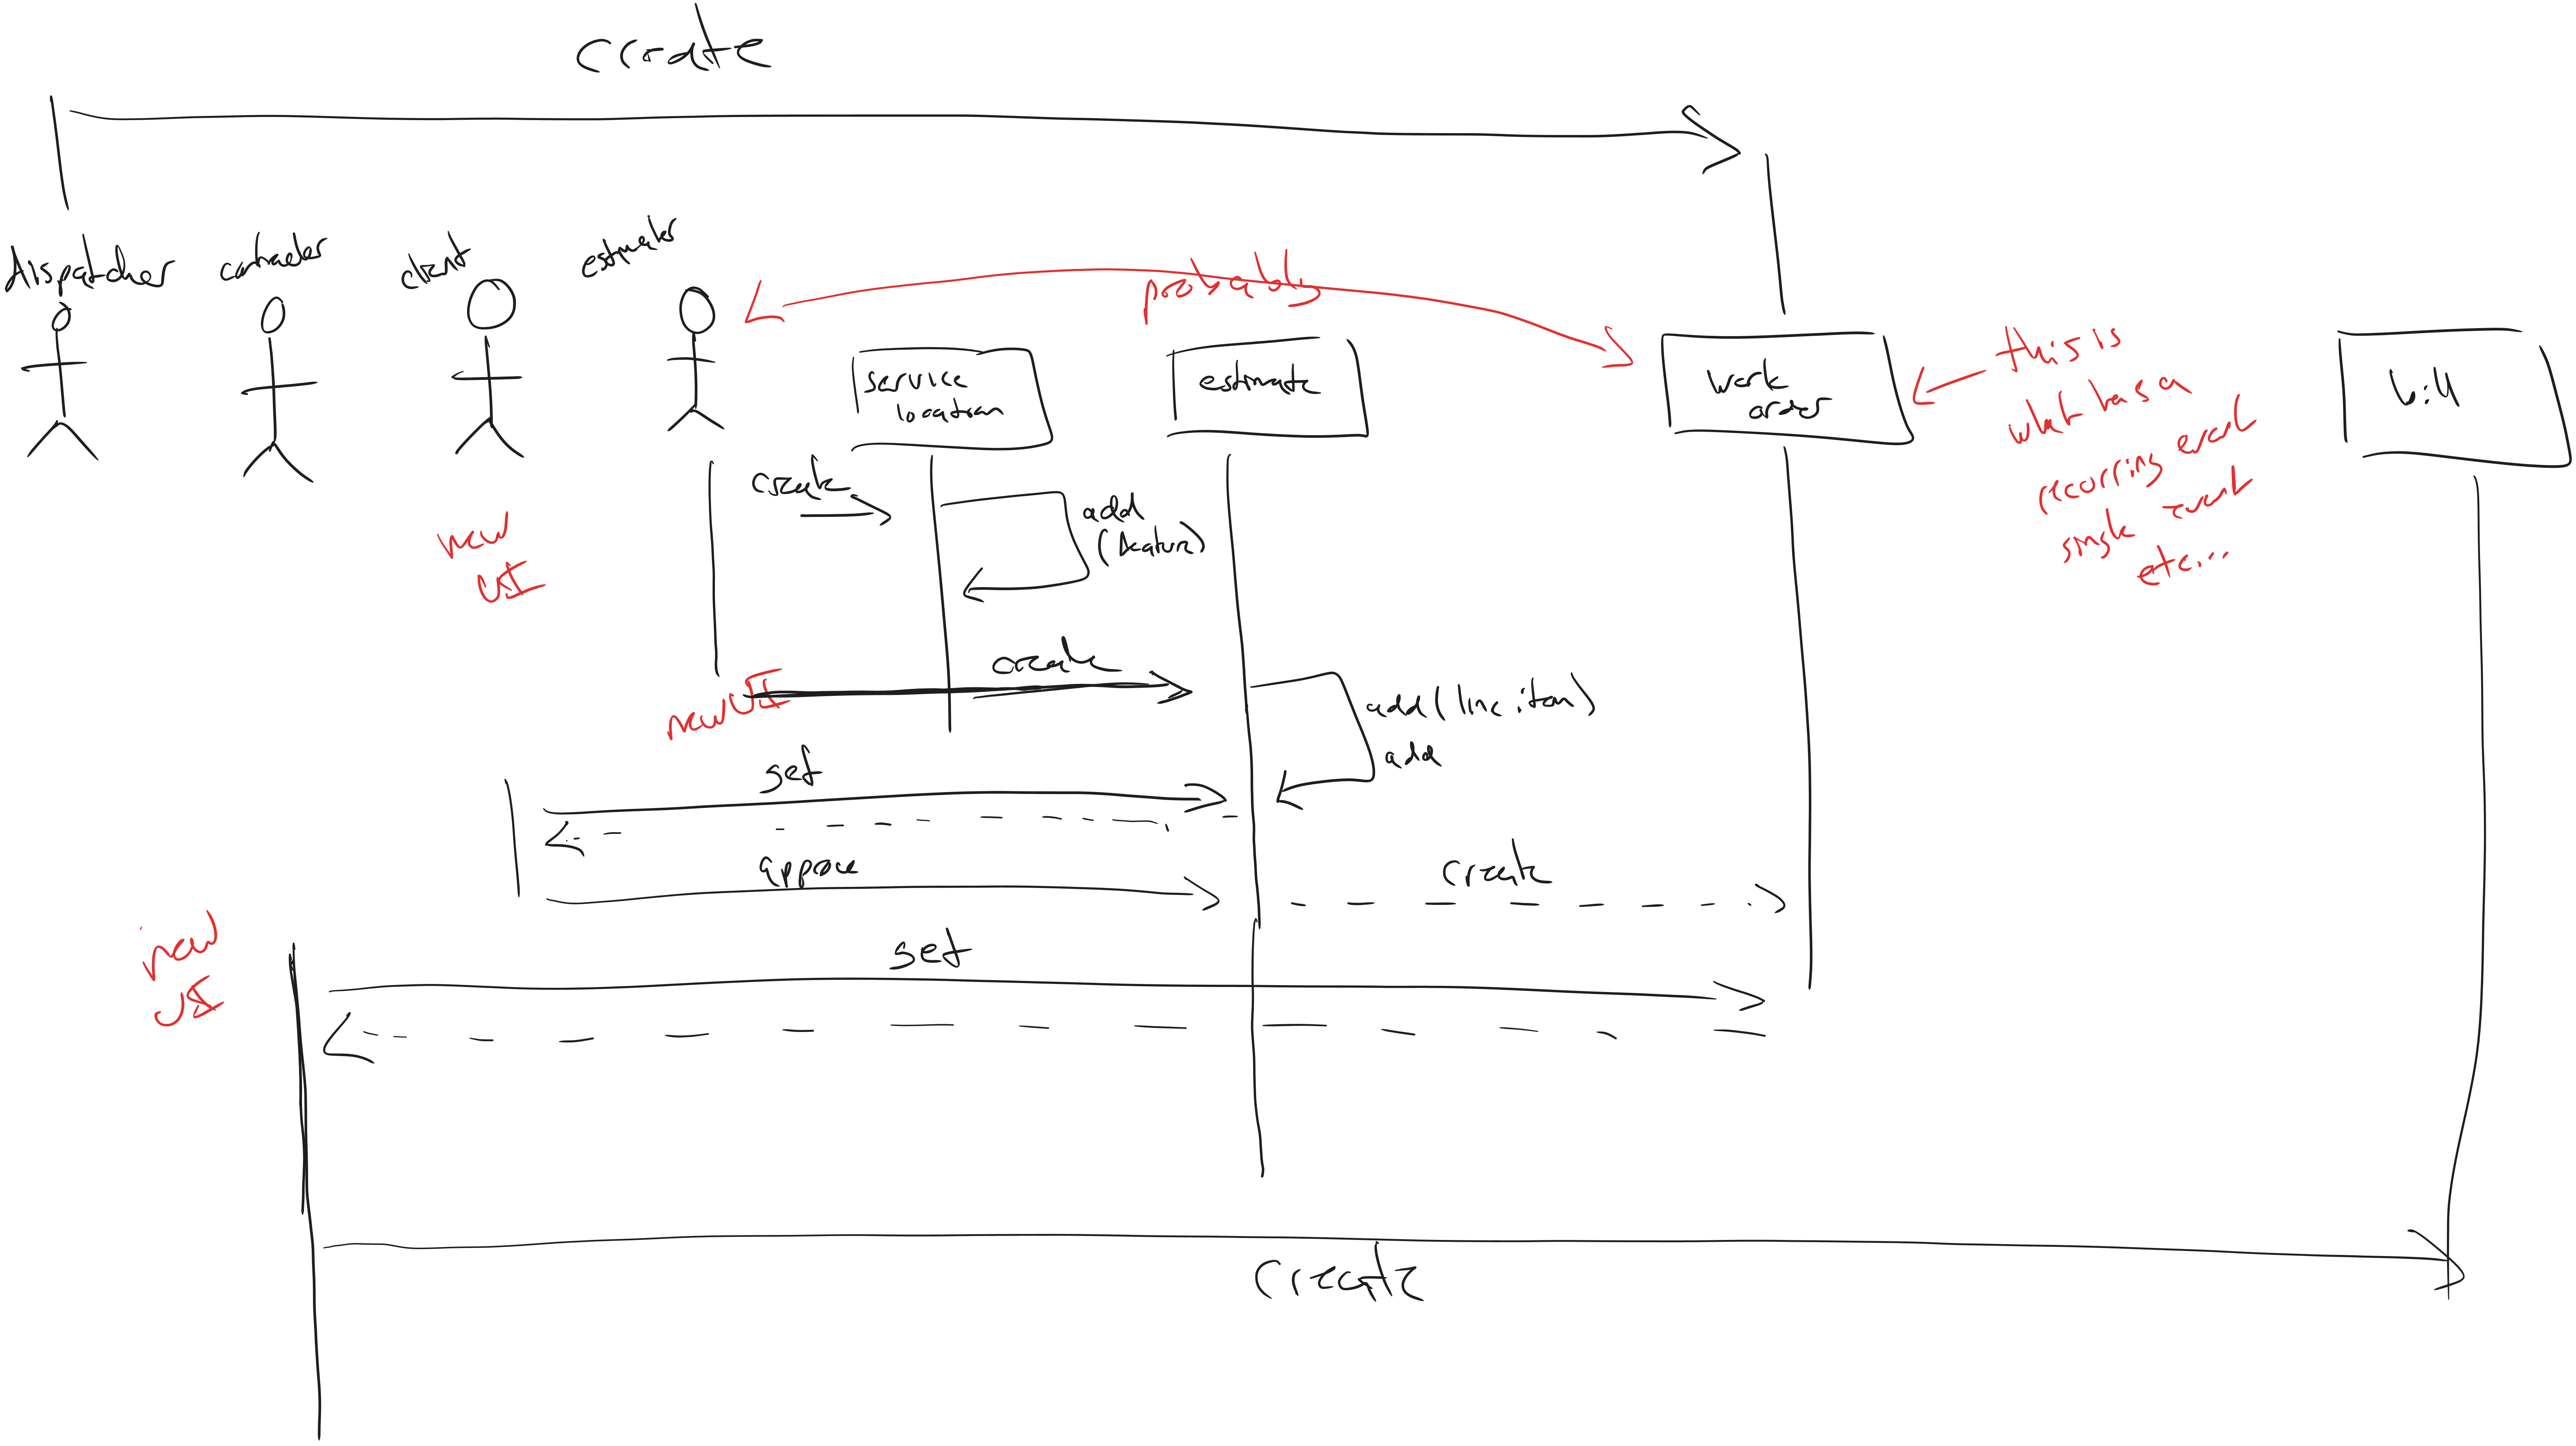 create
dispatcher
contractor
client
estimator
probably
service
location
estimate
work
order
this is
what has a
recurring event
single event
etc...
bill
create
add
(feature)
new
UI
create
new UI
add(line item)
add
set
approve
create
new
UI
set
create